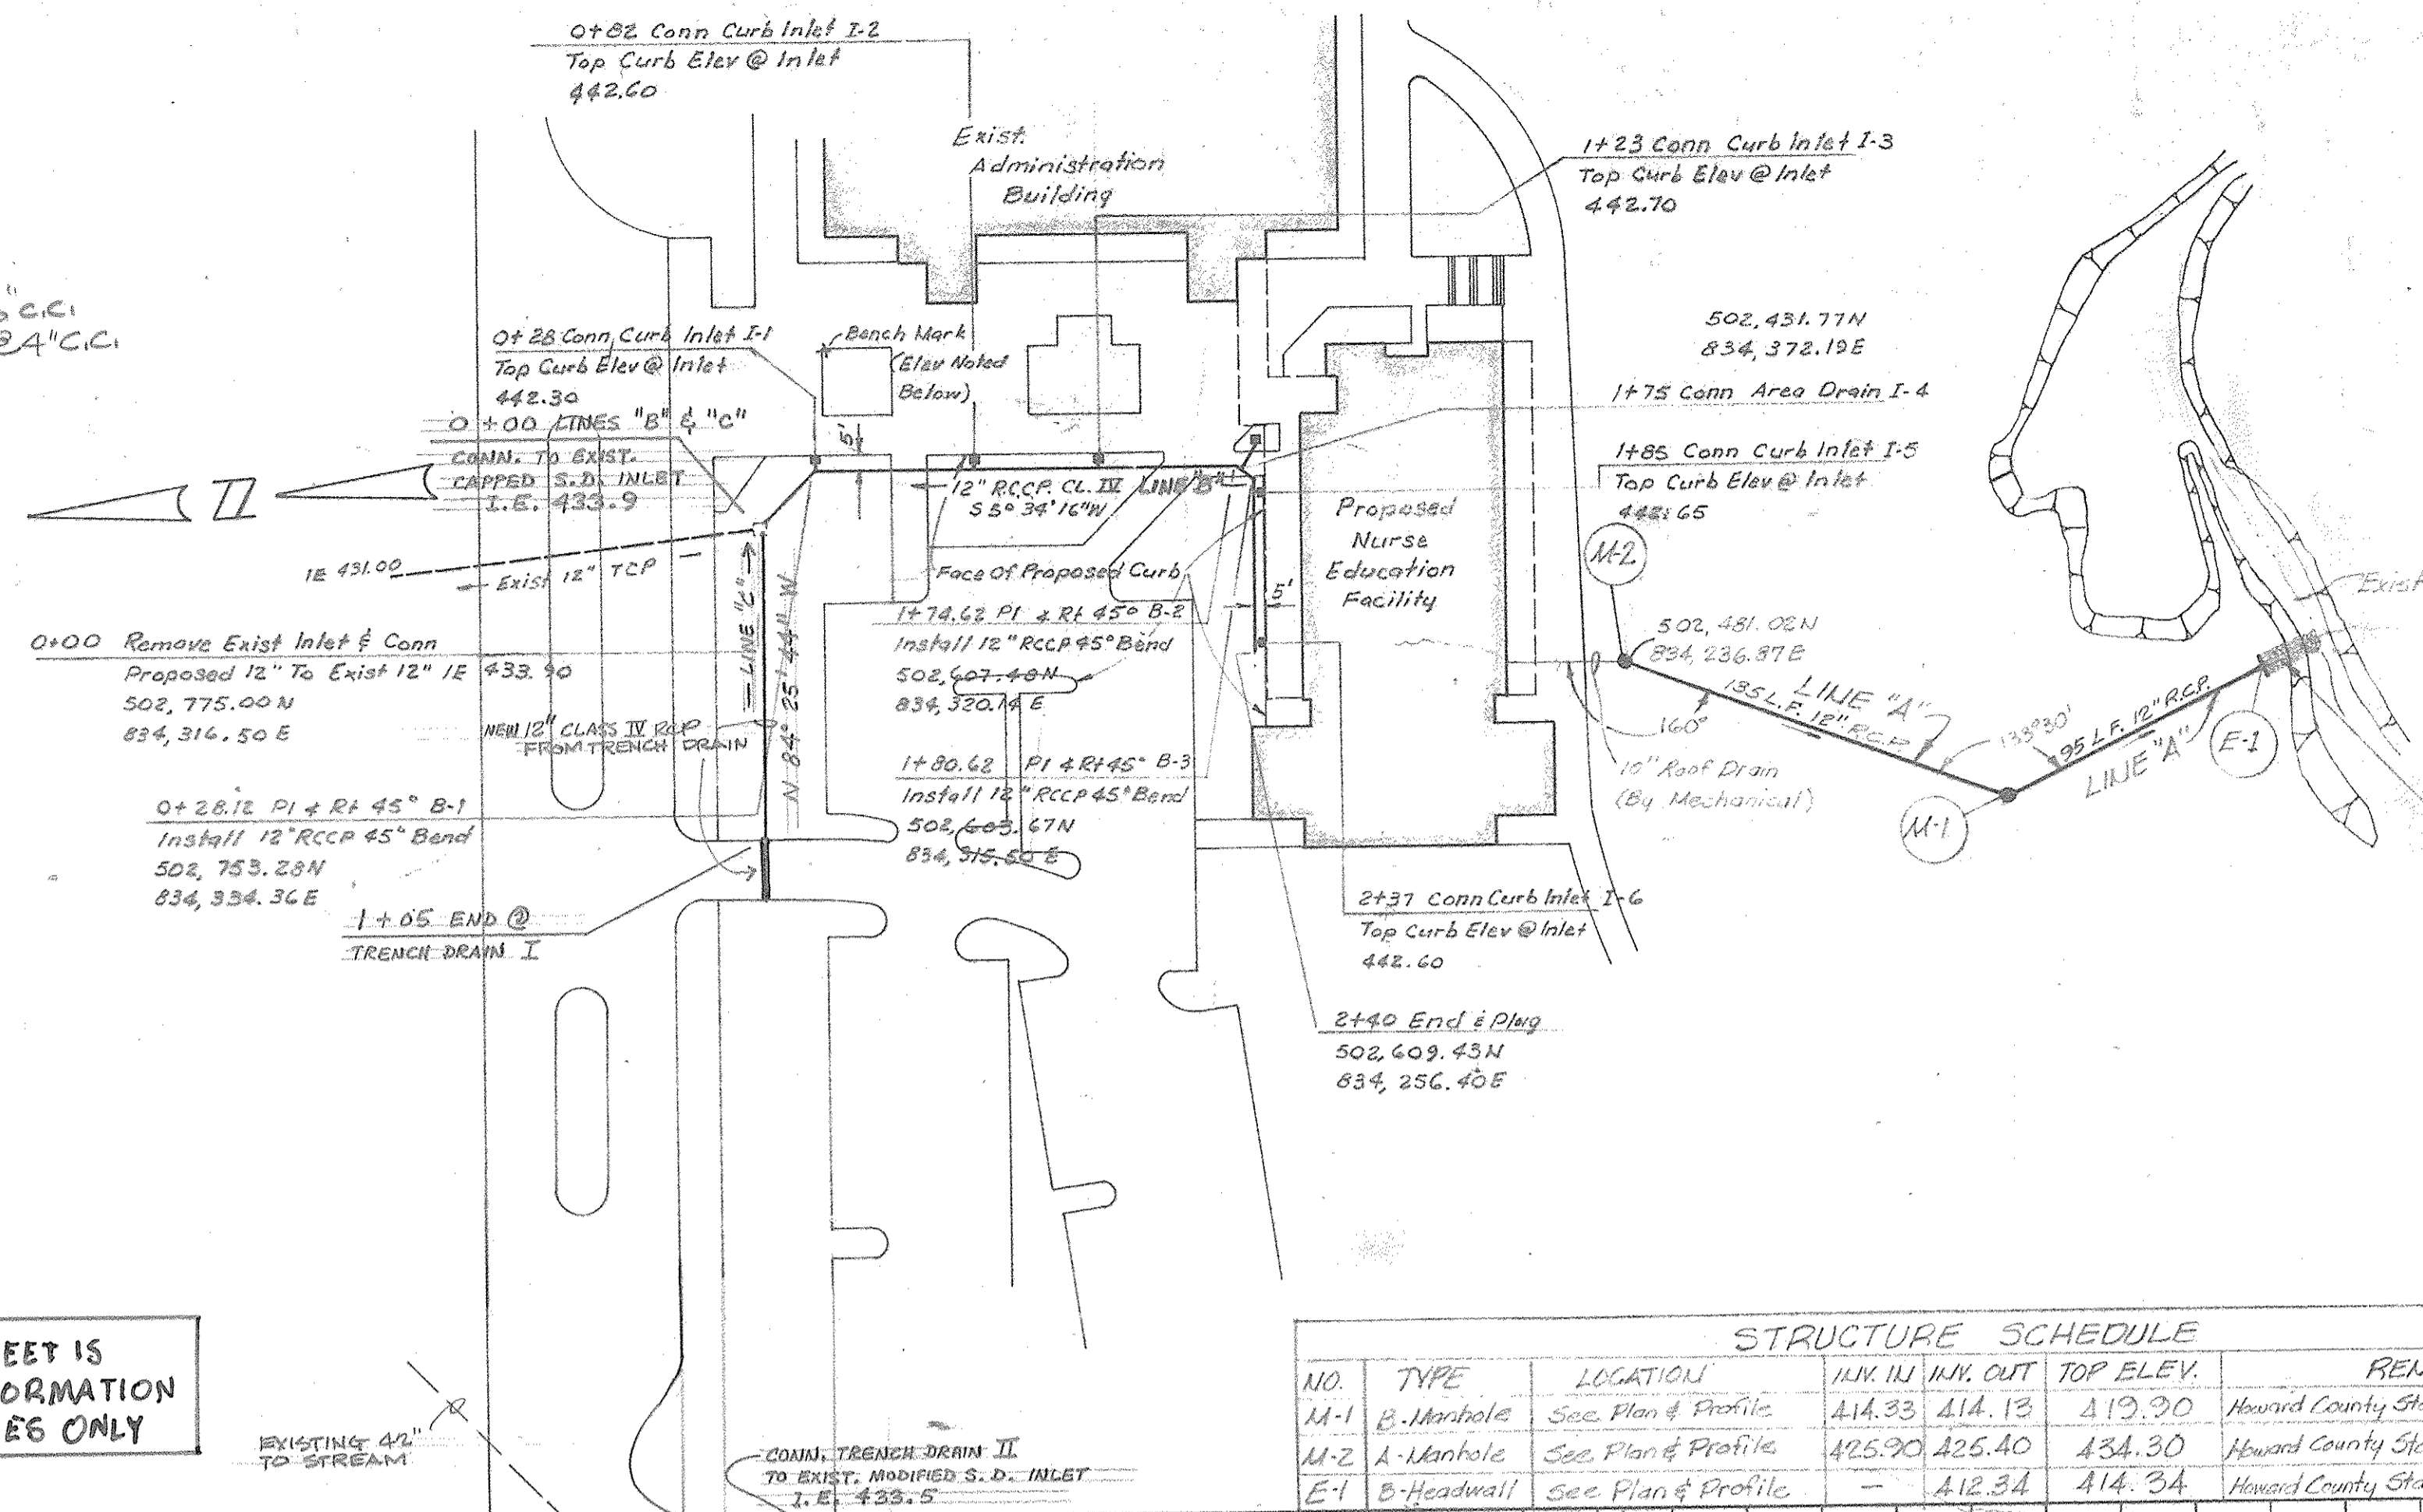 0+82 Conn Curb Inlet I-2
Top Curb Elev @ Inlet
442.60
Exist.
Administration
Building
1+23 Conn Curb Inlet I-3
Top Curb Elev @ Inlet
442.70
" C.C.
@ 4" C.C.
0+28 Conn Curb Inlet I-1
Top Curb Elev @ Inlet
442.30
Bench Mark
(Elev Noted
Below)
502,431.77N
834,372.19E
1+75 Conn Area Drain I-4
1+85 Conn Curb Inlet I-5
Top Curb Elev @ Inlet
442.65
0+00 LINES "B" & "C"
CONN. TO EXIST.
CAPPED S.D. INLET
I.E. 433.9
5'
12" R.C.C.P. CL. IV LINE "B"
S 5° 34' 16" W
Proposed
Nurse
Education
Facility
M-2
IE 431.00
Exist 12" TCP
LINE "C"
N 84° 25' 44" W
Face Of Proposed Curb
5'
1+74.62 PI & Rt 45° B-2
Install 12" RCCP 45° Bend
502,607.48N
834,320.14E
502,481.02N
834,236.87E
Exist
0+00 Remove Exist Inlet & Conn
Proposed 12" To Exist 12" IE 433.90
502,775.00N
834,316.50E
NEW 12" CLASS IV RCP
FROM TRENCH DRAIN
1+80.62 PI & Rt 45° B-3
Install 12" RCCP 45° Bend
502,603.67N
834,315.50E
LINE "A"
135 L.F. 12" R.C.P.
160°
133°30'
95 L.F. 12" R.C.P.
LINE "A"
E-1
10" Roof Drain
(By Mechanical)
M-1
0+28.12 PI & Rt 45° B-1
Install 12" RCCP 45° Bend
502,753.28N
834,334.36E
1+05 END @
TRENCH DRAIN I
2+37 Conn Curb Inlet I-6
Top Curb Elev @ Inlet
442.60
2+40 End & Plug
502,609.43N
834,256.40E
EET IS
ORMATION
ES ONLY
EXISTING 42"
TO STREAM
CONN. TRENCH DRAIN II
TO EXIST. MODIFIED S.D. INLET
I.E. 433.5
STRUCTURE SCHEDULE
NO. TYPE LOCATION INV. IN INV. OUT TOP ELEV. REM
M-1 B-Manhole See Plan & Profile 414.33 414.13 419.90 Howard County Sta
M-2 A-Manhole See Plan & Profile 425.90 425.40 434.30 Howard County Sta
E-1 B-Headwall See Plan & Profile — 412.34 414.34 Howard County Sta